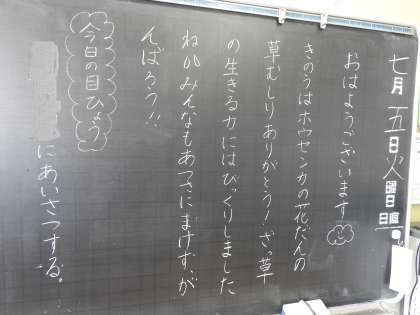 七月五日火曜日
日直
おはようございます
きのうはホウセンカの花だんの
草むしりありがとう！ざっ草
の生きる力にはびっくりしました
ね。みんなもあつさにまけず、が
んばろう!!
今日の目ひょう
にあいさつする。